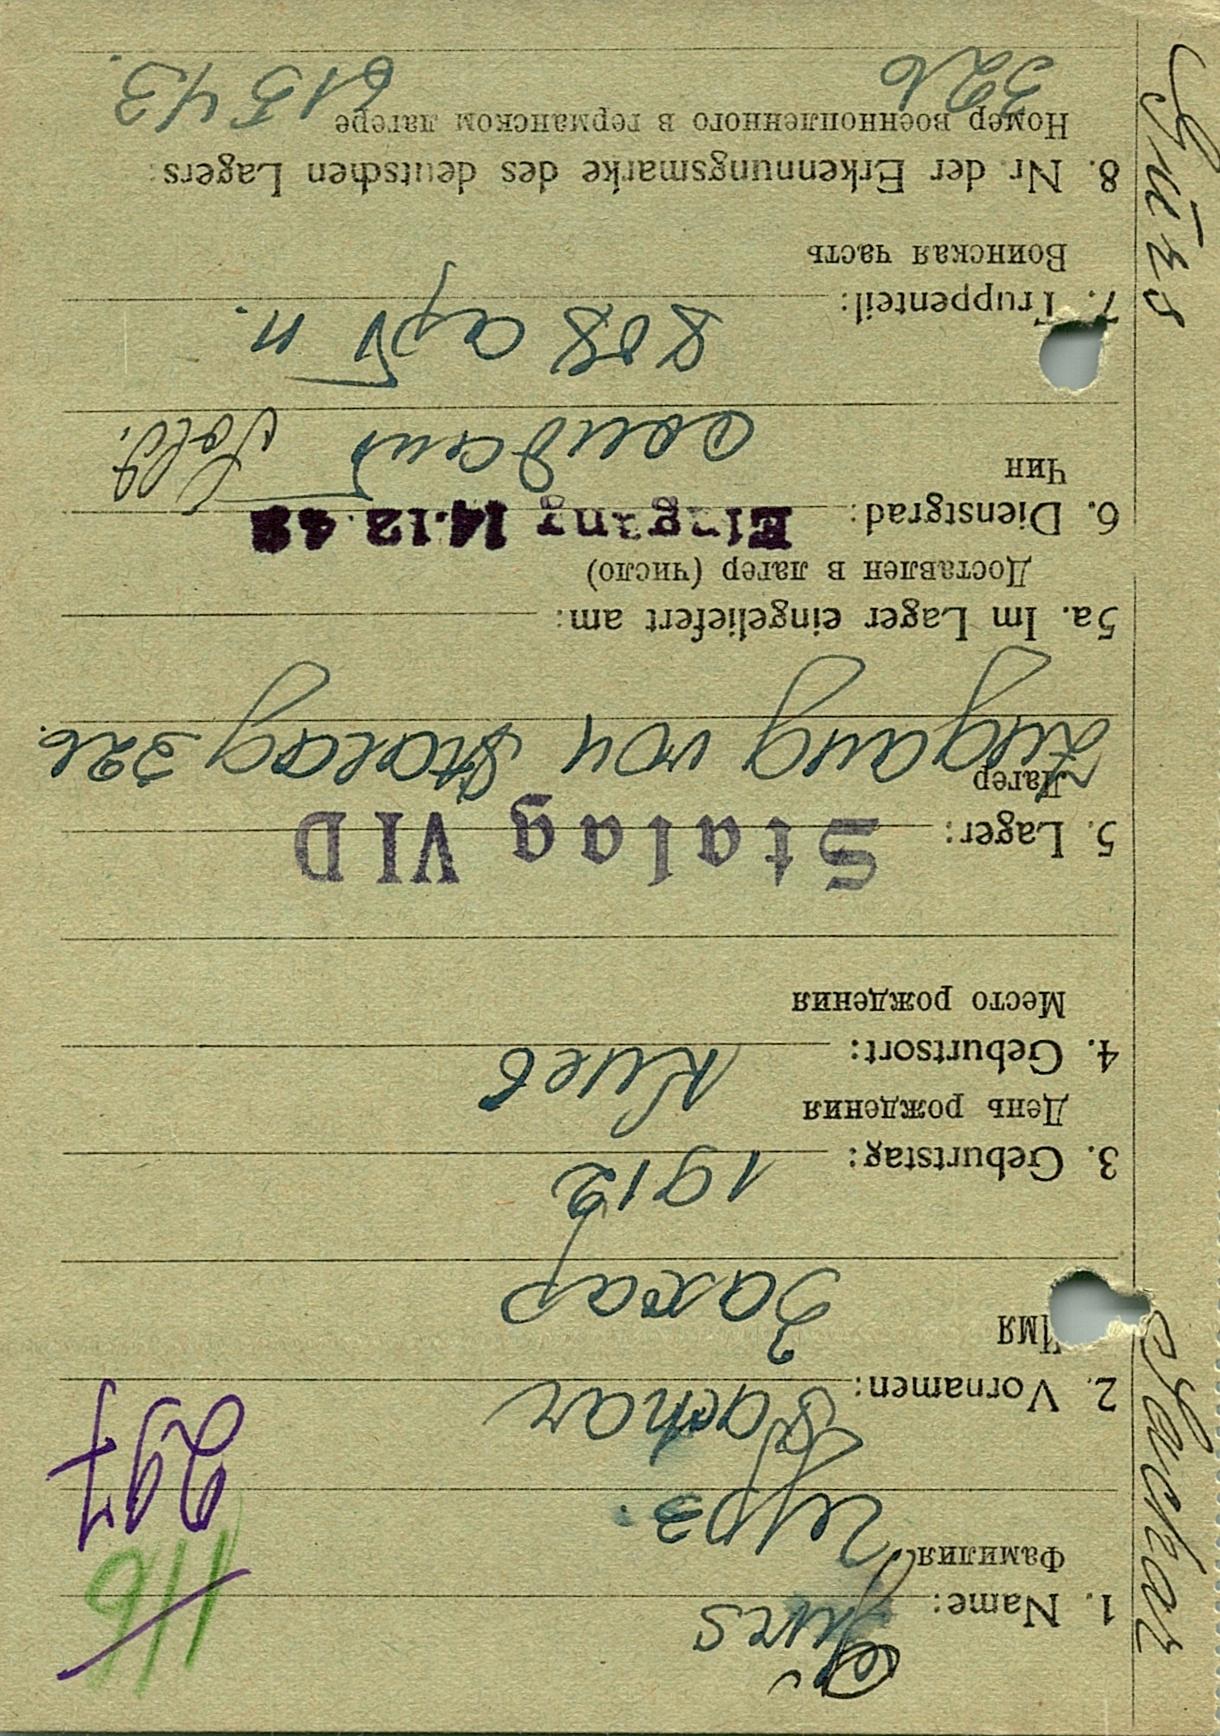 116
297
1. Name:
Фамилия
2. Vornamen: Sachar
Имя
Захар
3. Geburtstag: 1912
День рождения
4. Geburtsort: Киев
Место рождения
5. Lager: Stalag VID
Лагер
Zugang von Stalag 326.
5a. Im Lager eingeliefert am:
Доставлен в лагер (число)
Eingang 14.12.42
6. Dienstgrad: солдат Sold.
Чин
7. Truppenteil: 808 арт п.
Воинская часть
8. Nr. der Erkennungsmarke des deutschen Lagers:
Номер военнопленного в германском лагере
326 61543.
Sachar